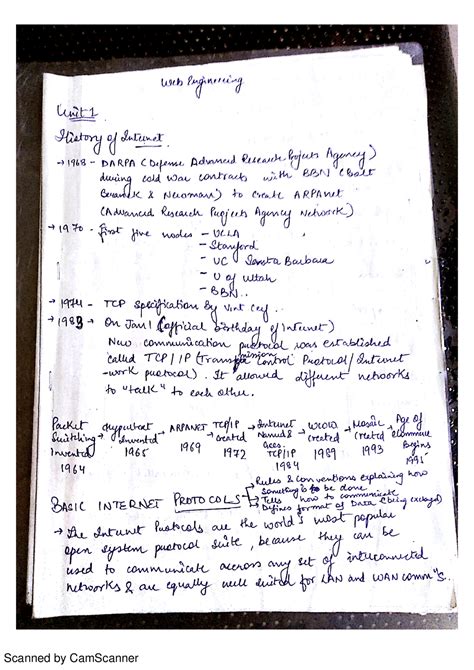 Web Engineering
Unit 1
History of Internet
→ 1968 - DARPA (Defense Advanced Research Projects Agency)
during cold war contracts with BBN (Bolt
& Newman) to create ARPAnet
(Advanced Research Projects Agency Network)
→ 1970 - First five nodes - UCLA
- Stanford
- UC Santa Barbara
- U of Uttah
- BBN..
→ 1974 - TCP specification By Vint Cerf.
→ 1983 → On Jan 1 (official birthday of Internet)
New communication protocol was established
called TCP/IP (Transmission Control Protocol/Internet
-work protocol). It allowed different networks
to "talk" to each other.
Packet Switching Invented 1964 → Hypertext Invented 1965 → ARPANET 1969 → TCP/IP created 1972 → Internet Named & TCP/IP 1984 → WWW created 1989 → Mosaic Created 1993 → Age of Ecommerce Begins 1995
BASIC INTERNET PROTOCOLS
→ Rules & Conventions explaining how something is to be done.
→ Tells how to communicate
→ Defines format of Data (being exchanged)
→ The Internet Protocols are the world's most popular
open system protocol suite, because they can be
used to communicate accross any set of interconnected
networks & are equally well suited for LAN and WAN commns.
Scanned by CamScanner